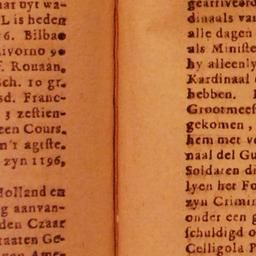 naar uyt wa-
L is heden
6. Bilbao
Livorno 9
. Rouaan,
Sch. 10 gr.
sd. Franc-
3 zestien-
een Cours.
n't agiste.
zyn 1196,
Holland en
g aanvan-
den Czaar
taaten Ge-
dinaals van
alle dagen
als Ministe
hy alleenly
Kardinaal
hebben.
Grootmees
gekomen,
hem met v
naal del Gu
Soldaren di
lyen het Fo
zyn Crimin
onder een g
schuldig o
Celligola P